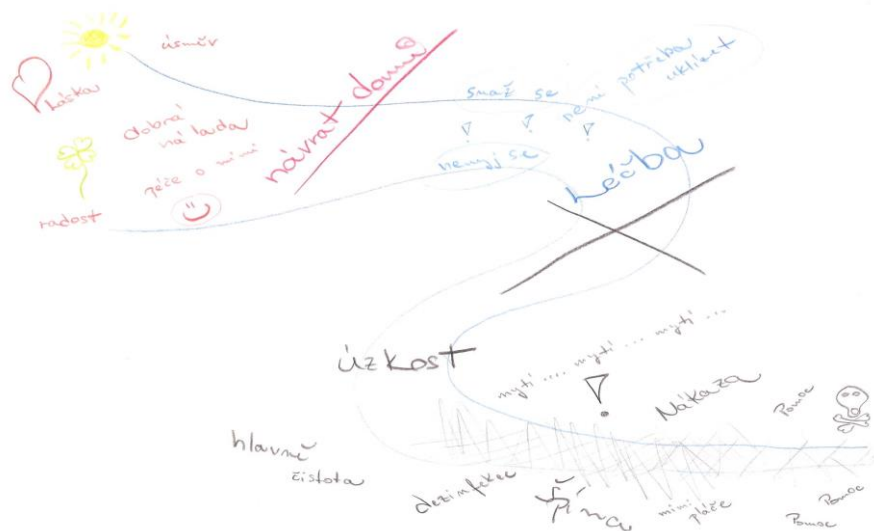 úsměv
láska
dobrá
nálada
péče o mimi
radost
návrat domů
snaž se
není potřeba
uklízet
nemyj se
Léčba
úzkost
mytí .... mytí ... mytí ...
!
Nákaza
Pomoc
hlavně
čistota
dezinfekce
Špína
mimi
pláče
Pomoc
Pomoc